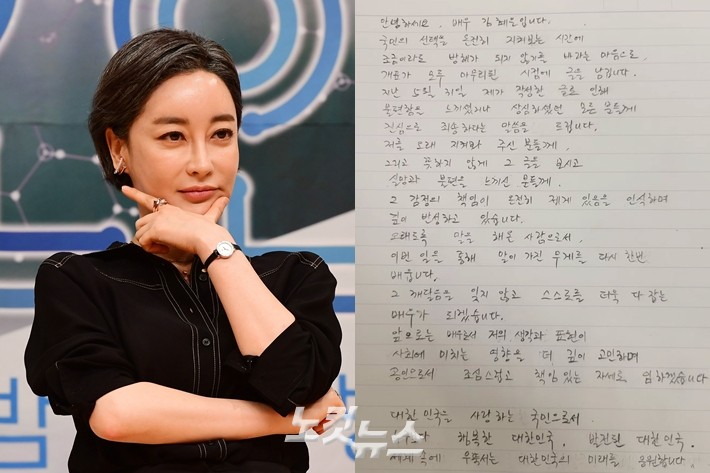 안녕하세요. 배우 김혜은입니다.
국민의 선택을 온전히 지켜보는 시간에
조금이라도 방해가 되지 않기를 바라는 마음으로,
개표가 모두 마무리된 시점에 글을 남깁니다.
지난 5월 31일 제가 작성한 글로 인해
불편함을 느끼셨거나 상심하셨던 모든 분들께
진심으로 죄송하다는 말씀을 드립니다.
저를 오래 지켜봐 주신 분들께,
그리고 뜻하지 않게 그 글을 보시고
실망과 불편을 느끼신 분들께,
그 감정의 책임이 온전히 제게 있음을 인식하며
깊이 반성하고 있습니다.
오래도록 말을 해온 사람으로서,
이번 일을 통해 말이 가진 무게를 다시 한번
배웁니다.
그 깨달음을 잊지 않고 스스로를 더욱 다잡는
배우가 되겠습니다.
앞으로는 배우로서 저의 생각과 표현이
사회에 미치는 영향을 더 깊이 고민하며
공인으로서 조심스럽고 책임 있는 자세로 임하겠습니다
대한민국을 사랑하는 국민으로서,
행복한 대한민국, 발전된 대한민국.
속에 우뚝서는 대한민국의 미래를 응원합니다.
노컷뉴스
밤